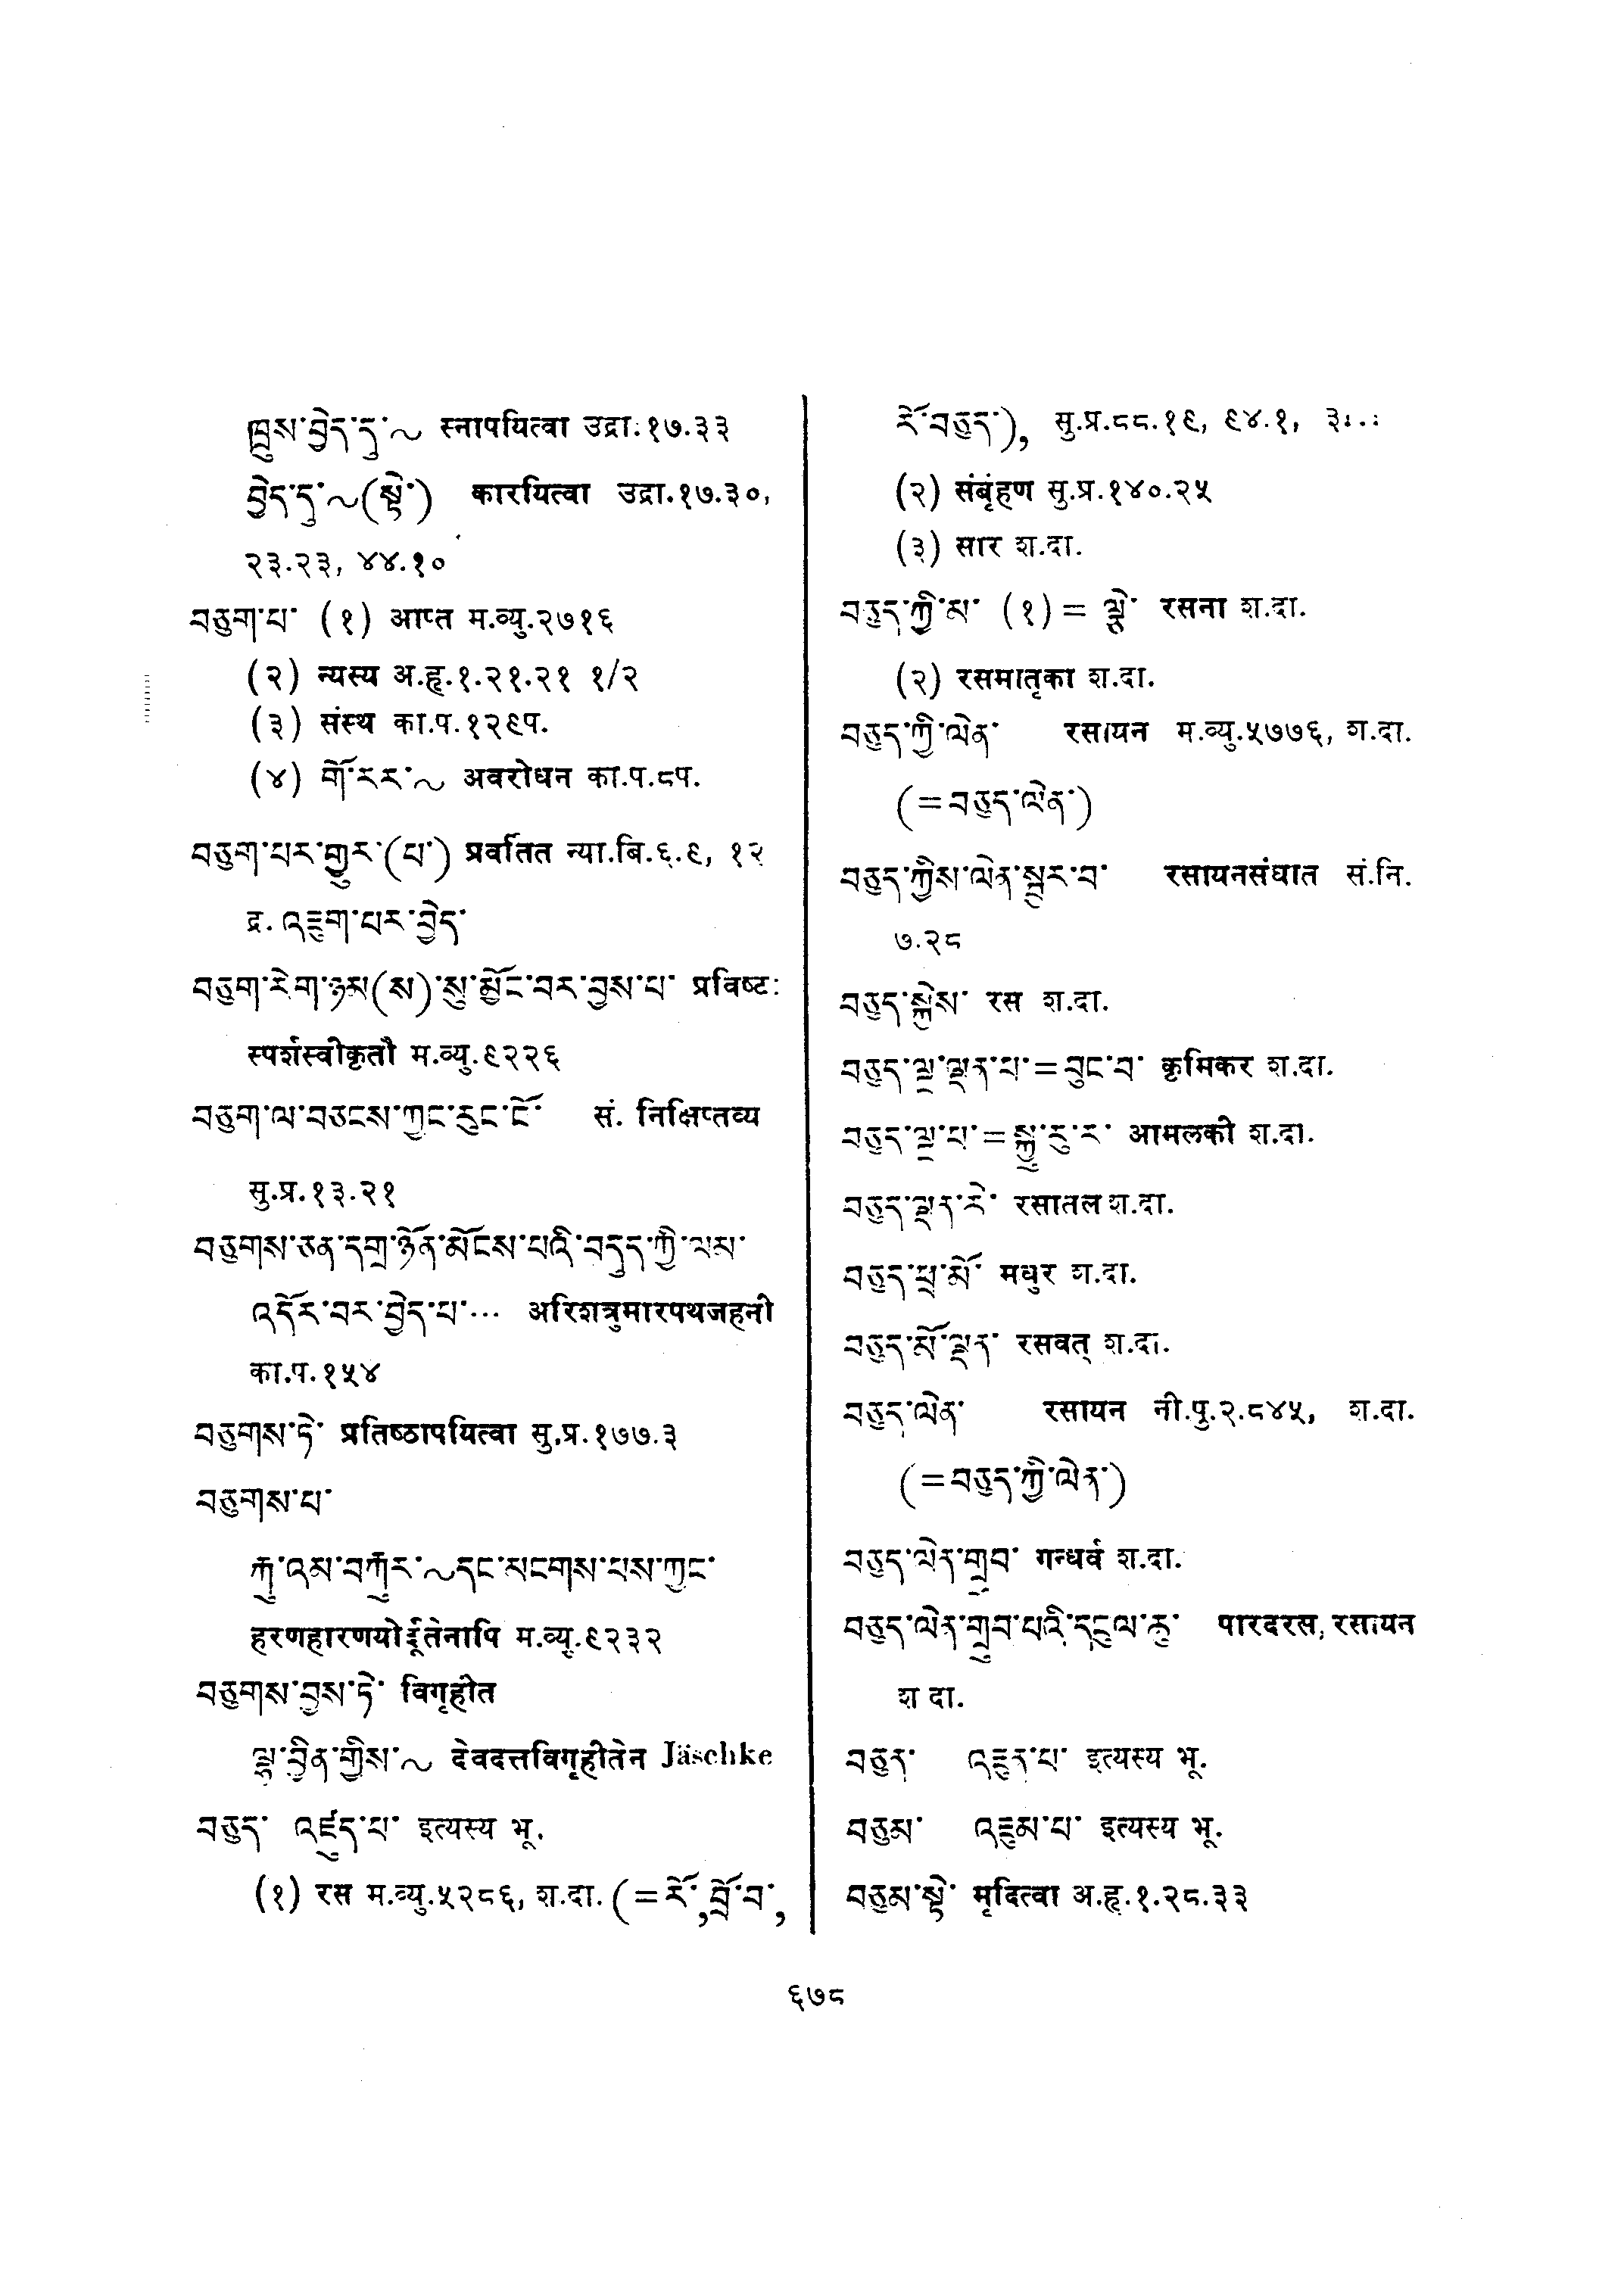 ཁྲུས་བྱེད་དུ་~ स्नापयित्वा उद्रा.१७.३३
བྱེད་དུ་~(སྟེ་) कारयित्वा उद्रा.१७.३०,
२३.२३, ४४.१०
བཅུག་པ་ (१) आप्त म.व्यु.२७१६
(२) न्यस्य अ.हृ.१.२१.२१ १/२
(३) संस्थ का.प.१२९प.
(४) གོ་རར་~ अवरोधन का.प.८प.
བཅུག་པར་གྱུར་(པ་) प्रवर्तित न्या.बि.६.९, १२
द्र. འཇུག་པར་བྱེད་
བཅུག་རེག་ཉམ(ས)་སུ་མྱོང་བར་བྱས་པ་ प्रविष्टः
स्पर्शस्वीकृतौ म.व्यु.९२२६
བཅུག་ལ་བཅངས་ཀྱང་རུང་ངོ་ सं. निक्षिप्तव्य
सु.प्र.१३.२१
བཅུགས་ཅན་དགྲ་ཉོན་མོངས་པའི་བདུད་ཀྱི་ལམ་
འདོར་བར་བྱེད་པ་... अरिशत्रुमारपथजहनी
का.प.१५४
བཅུགས་ཏེ་ प्रतिष्ठापयित्वा सु.प्र.१७७.३
བཅུགས་པ་
རྐུ་འམ་བརྐུར་~དང་མངགས་པས་ཀྱང་
हरणहारणयोर्दूतेनापि म.व्यु.९२३२
བཅུགས་བྱས་ཏེ་ विगृहीत
ལྷ་བྱིན་གྱིས་~ देवदत्तविगृहीतेन Jäschke
བཅུད་ འཛུད་པ་ इत्यस्य भू.
(१) रस म.व्यु.५२८६, श.दा. (=རོ་,བྲོ་བ་,
རོ་བཅུད་), सु.प्र.८८.१९, ९४.१,
(२) संबृंहण सु.प्र.१४०.२५
(३) सार श.दा.
བཅུད་ཀྱི་མ་ (१) = ལྕེ་ रसना श.दा.
(२) रसमातृका श.दा.
བཅུད་ཀྱི་ལེན་ रसायन म.व्यु.५७७६, श.दा.
(=བཅུད་ལེན་)
བཅུད་ཀྱིས་ལེན་སྦྱར་བ་ रसायनसंघात सं.नि.
७.२८
བཅུད་སྐྱེས་ रस श.दा.
བཅུད་ལྔ་ལྡན་པ་=བུང་བ་ कृमिकर श.दा.
བཅུད་ལྔ་པ་=སྐྱུ་རུ་ར་ आमलकी श.दा.
བཅུད་ལྡན་རི་ रसातल श.दा.
བཅུད་ཕྲ་མོ་ मधुर श.दा.
བཅུད་མོ་ལྡན་ रसवत् श.दा.
བཅུད་ལེན་ रसायन नी.पु.२.८४५, श.दा.
(=བཅུད་ཀྱི་ལེན་)
བཅུད་ལེན་གྲུབ་ गन्धर्व श.दा.
བཅུད་ལེན་གྲུབ་པའི་དངུལ་ཆུ་ पारदरस, रसायन
श दा.
བཅུན་ འཇུན་པ་ इत्यस्य भू.
བཅུམ་ འཇུམ་པ་ इत्यस्य भू.
བཅུམ་སྟེ་ मृदित्वा अ.हृ.१.२८.३३
६७८